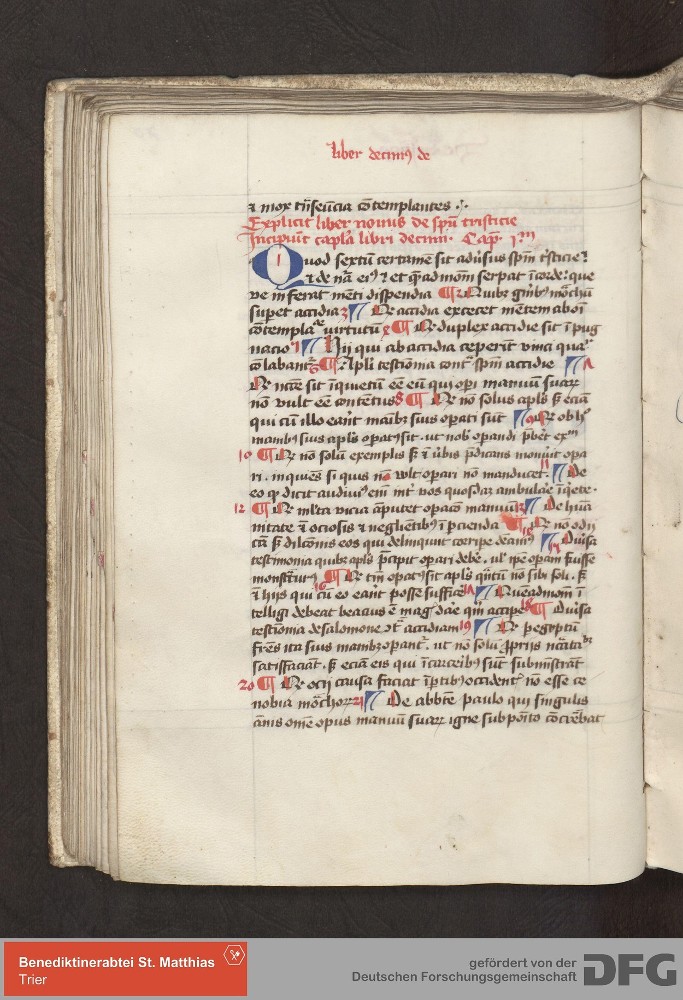 liber decimꝰ de
⁊ mox tñſeūcia cōtemplantes
Explicit liber nonus de ſpū triſticie
Incipiūt capl̄a libri decimi. Cap̄. 1m
Quod ſextū certamē ſit adūſus ſpm̄ tͥſticie
⁊ de nā eiꝰ ⁊ et qͣ admom̄ ſerpat ī corde: que
ve inferat mēti diſpendia ¶ 2 Quibꝫ gn̄ibꝰ mōchū
ſuꝑet accidia 3 ¶ Qͬ accidia excecet mētem ab oī
cōtemplaͨͤ virtutū 4 ¶ Qͬ duplex accidie ſit īpug
nacio ¶ Hij qui ab accidia ceperīt vinci quaͬ
colabantͬ 6 ¶ Apl̄i teſtīonia contͣ ſpm̄ accidie ¶ 7
Qͬ nc̄e ſit īquietū eē eū qui oꝑi manuū ſuaꝝ
nō vult eē contētus 8 ¶ Qͬ nō ſolus apl̄s ſꝫ eciā
qui cū illo eāt manibꝫ ſuis oꝑati ſūt ¶ 9 Qͬ ob hͦ
manibꝰ ſuis apl̄s oꝑatꝰ ſit. ut nob̄ oꝑandi p̄bēt exͫ
10 ¶ Qͬ nō ſolū exemplis ſꝫ ī v̄bis p̄dicans monuit oꝑa
ri. inquiēs ſi quis nō vult oꝑari nō manducet. 11 ¶ De
eo qͩ dicit audiuiꝰ em̄ int̄ vos quoſdaꝫ ambulāe īqͥete.
12 ¶ Qͬ ml̄ta vicia āputet oꝑacō manuuꝫ ¶ De huā
nitate ī ocioſis ⁊ negliētibꝰ īpcienda ¶ Qͬ nō odij
cā ſꝫ dilcōnis eos qui delinquīt corriꝑe deamꝰ ¶ Diūſa
teſtimonia quibꝫ apl̄s p̄cipit oꝑari debē. ul̄ ip̄e oꝑam̄ fuiſſe
monſtratur ¶ Qͬ tm̄ oꝑatꝰ ſit apl̄s qͣntū nō ſibi ſoli. ſꝫ
ī hijs qui cū eo eāt poſſe ſufficē 17 ¶ Quēadmom̄ ī
telligi debeat beacius ē magͥ dāe qͣm̄ accipe 18 ¶ Diūſa
teſtīonia de ſalomone cͦt̄ accidiam 19 ¶ Qͬ p egyptū
frēs ita ſuis manibꝫ oꝑantͬ. ut nō ſolū ꝓprijs nc̄itatibꝫ
ſatiſfaciāt. ſꝫ eciā eis qui ī carceribꝰ ſūt ſubminiſtrāt
20 ¶ Qͬ ocij cauſa faciat ī ꝑtibꝰ occidentͥ nō eſſe ce
nobia mōchoꝝ 21 ¶ De abbt̄e paulo qui ſingulis
ānis om̄e opus manuū ſuaꝝ igne ſuppoīto cōcrēbat
Benediktinerabtei St. Matthias
Trier
gefördert von der
Deutschen Forschungsgemeinschaft
DFG